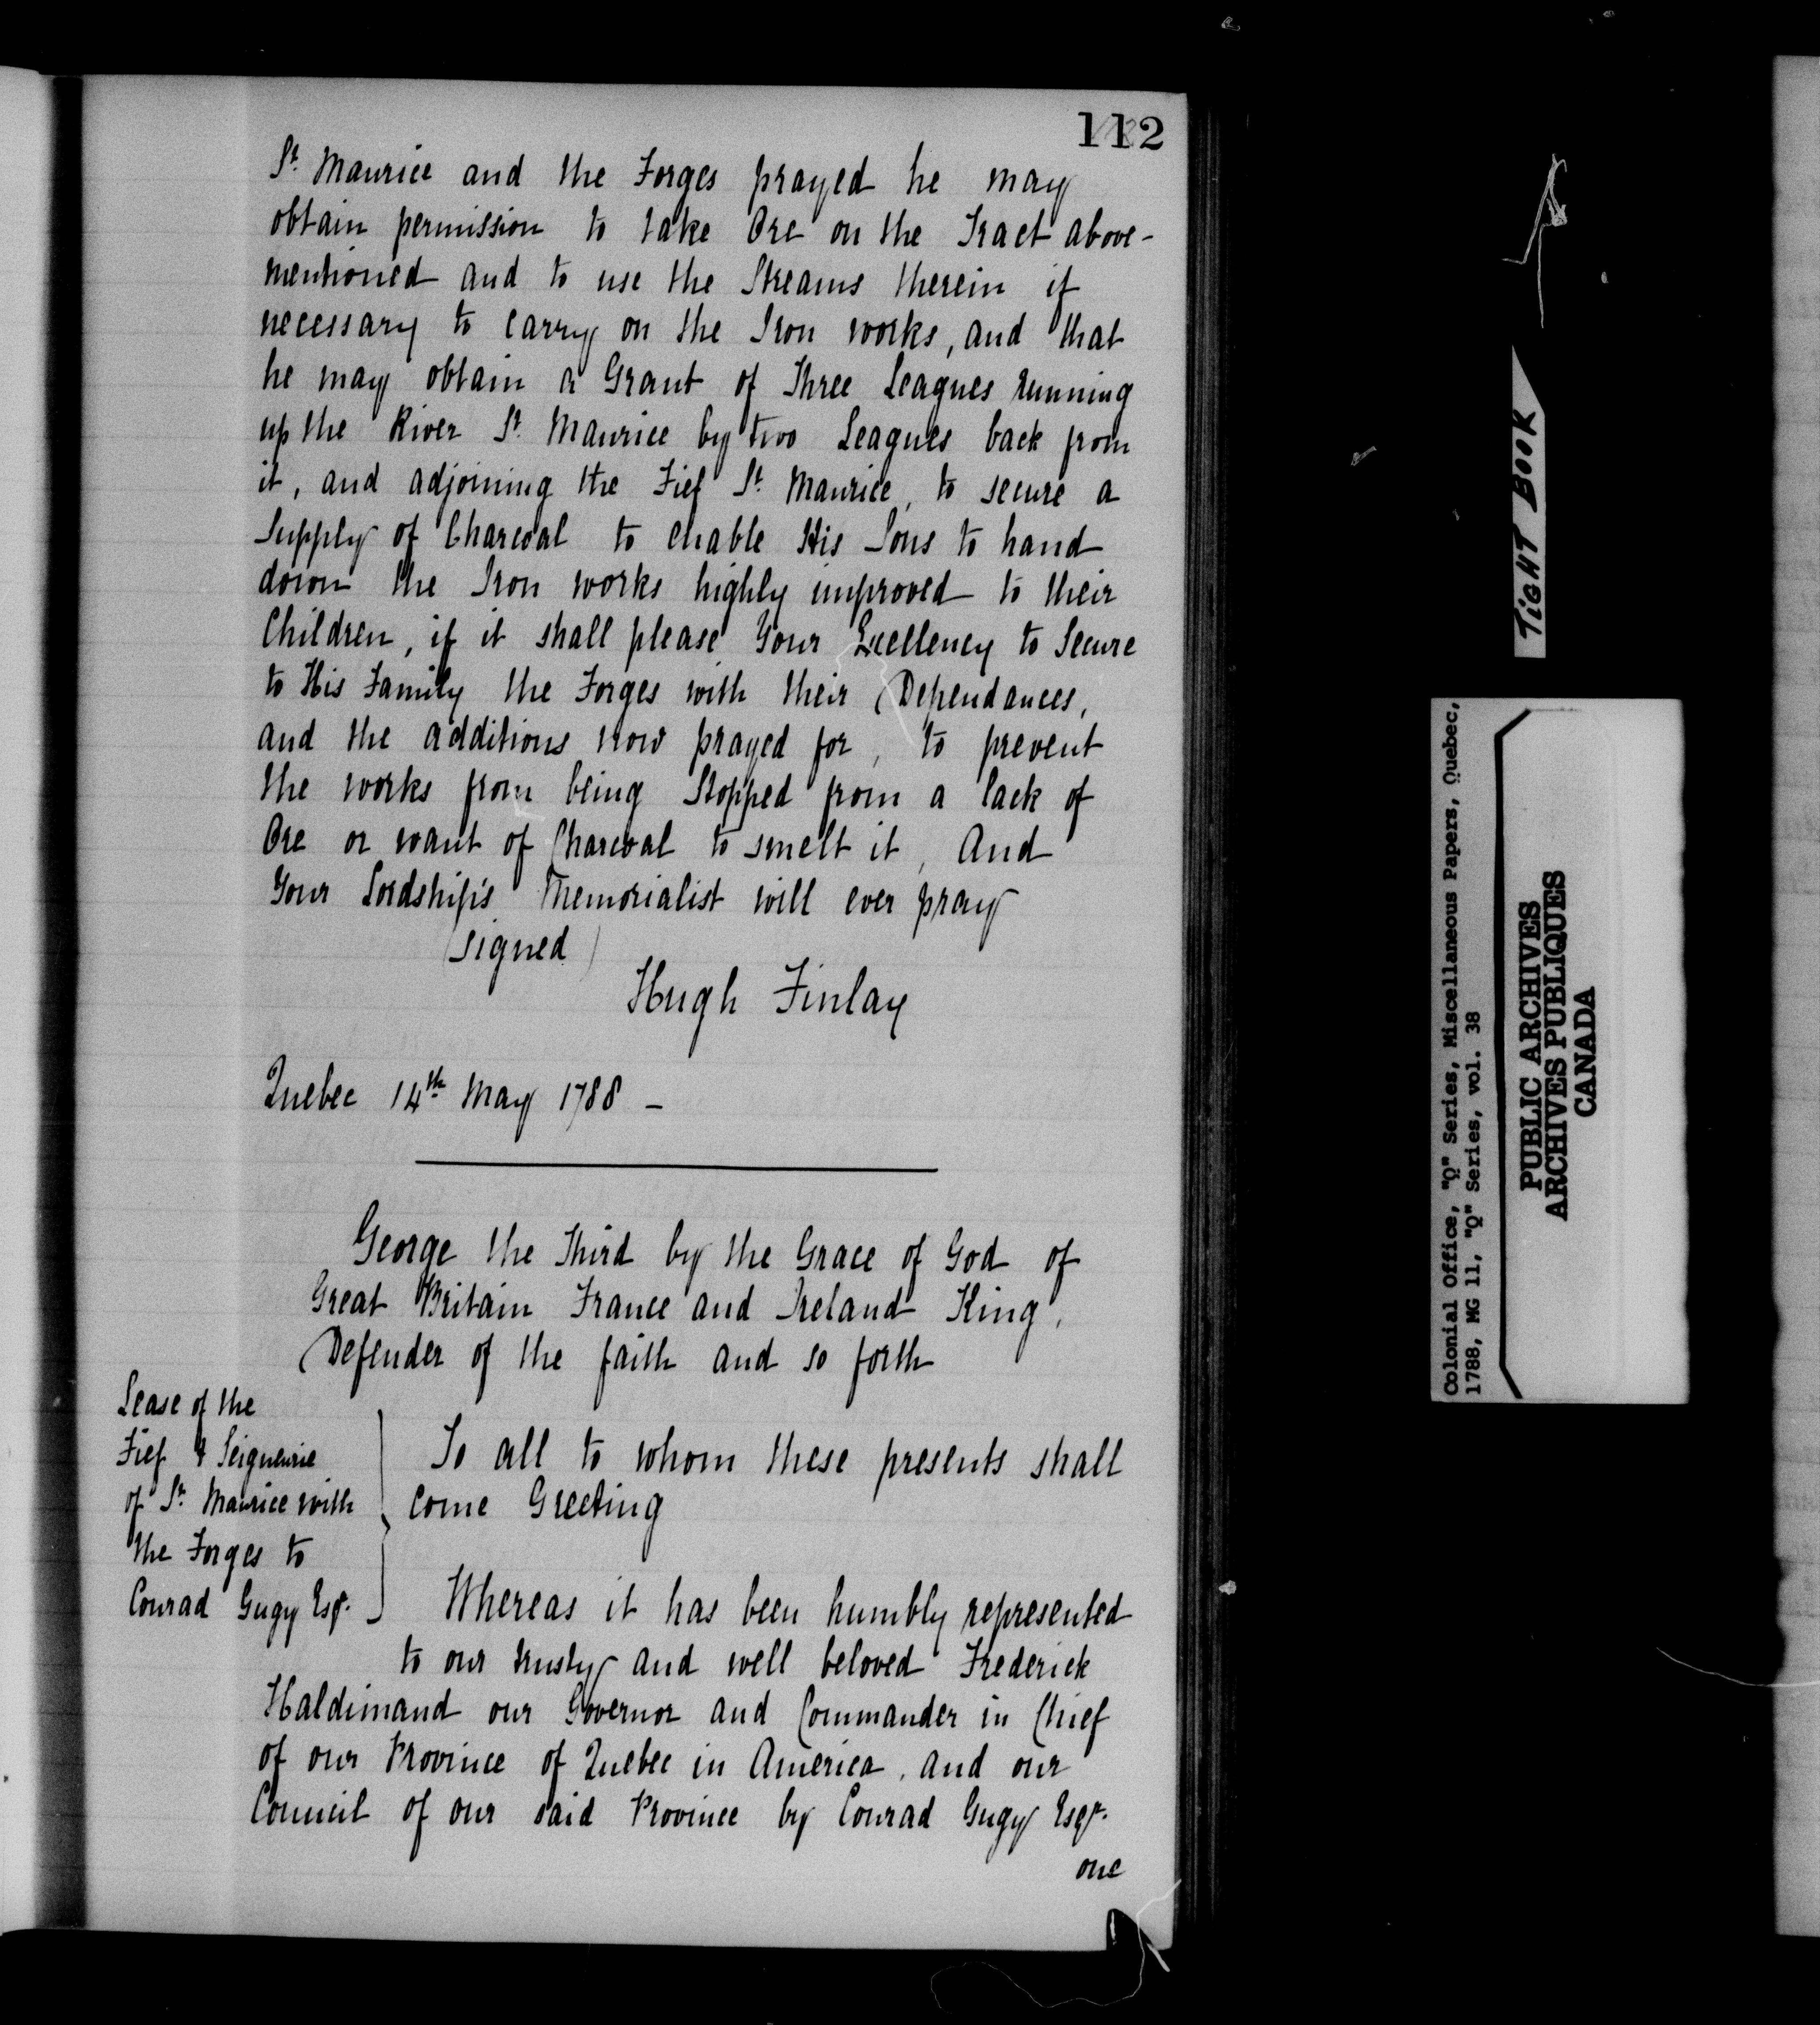 112
St. Maurice and the Forges prayed he may
obtain permission to take Ore on the Tract above-
mentioned and to use the Streams therein if
necessary to carry on the Iron works, and that
he may obtain a Grant of Three Leagues running
up the River St. Maurice by two Leagues back from
it, and adjoining the Fief St. Maurice, to secure a
Supply of Charcoal to enable His Sons to hand
down the Iron works highly improved to their
Children, if it shall please Your Excellency to Secure
to His Family the Forges with their Dependances,
and the additions now prayed for, to prevent
the works from being Stopped from a lack of
Ore or want of Charcoal to smelt it, And
Your Lordship's Memorialist will ever pray
(signed)
Hugh Finlay
Quebec 14th May 1788 -
George the Third by the Grace of God of
Great Britain France and Ireland King,
Defender of the faith and so forth
Lease of the
Fief & Seigneurie
of St. Maurice with
the Forges to
Conrad Gugy Esqr.
To all to whom these presents shall
come Greeting
Whereas it has been humbly represented
to our trusty and well beloved Frederick
Haldimand our Governor and Commander in Chief
of our Province of Quebec in America, and our
Council of our said Province by Conrad Gugy Esqr.
one
TIGHT BOOK
Colonial Office, "Q" Series, Miscellaneous Papers, Quebec,
1788, MG 11, "Q" Series, vol. 38
PUBLIC ARCHIVES
ARCHIVES PUBLIQUES
CANADA